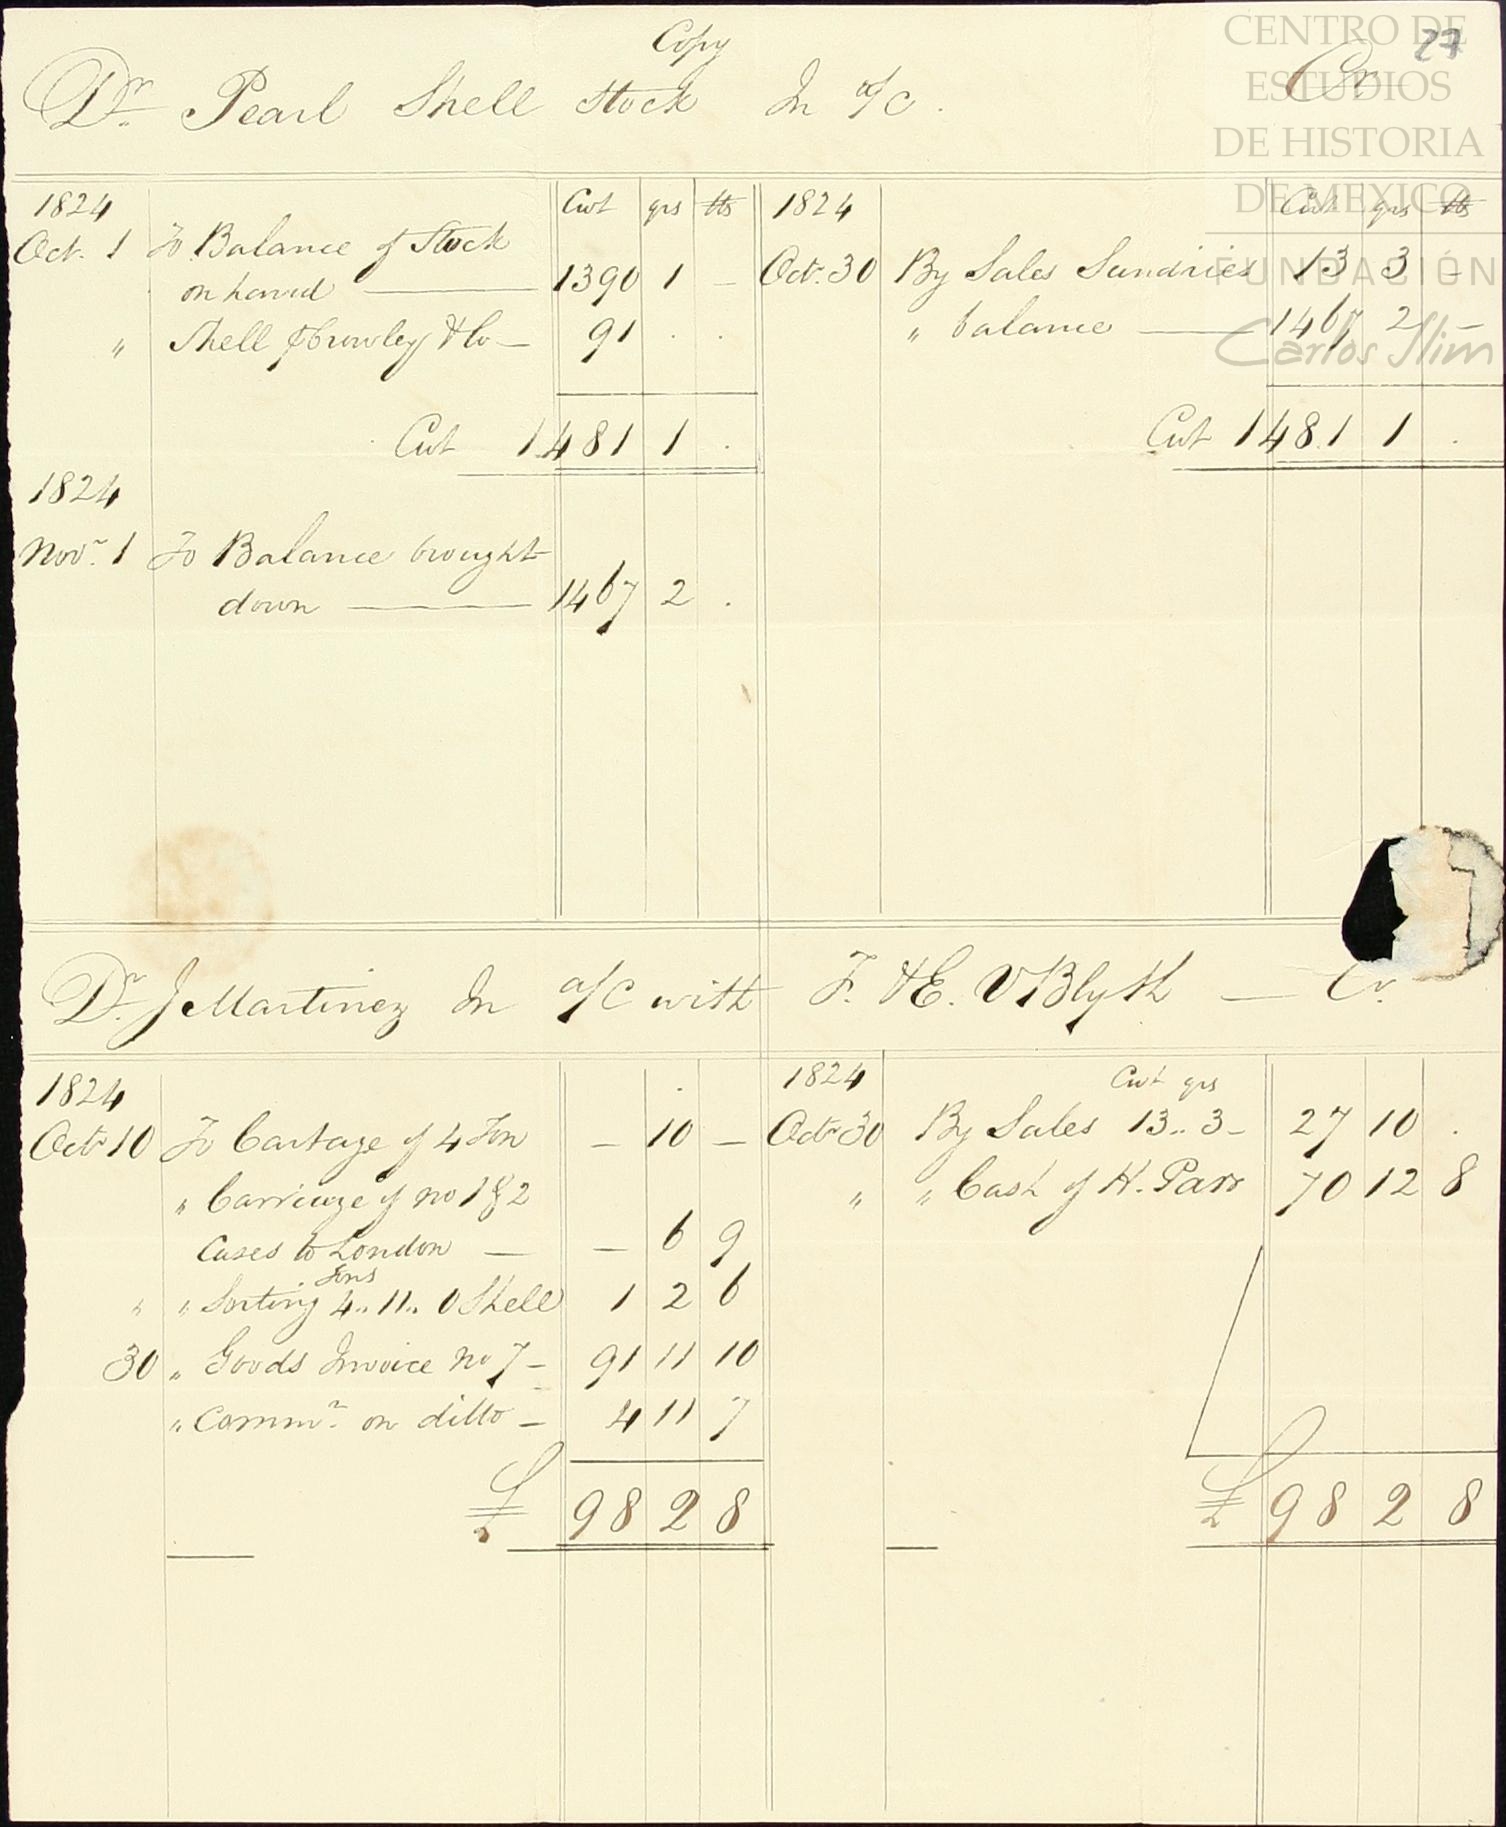 Copy
27
Dr Pearl Shell Stock In a/c. Cr
CENTRO DE
ESTUDIOS
DE HISTORIA
DE MEXICO
FUNDACIÓN
Carlos Slim
1824 Cwt qrs lbs 1824 Cwt qrs lbs
Oct. 1 To Balance of Stock
on hand 1390 1 – Oct. 30 By Sales Sundries 13 3 –
" Shell p Crowley & Co – 91 . . " balance 1467 2 –
Cwt 1481 1 . Cwt 1481 1 .
1824
Novr. 1 To Balance brought
down 1467 2 .
Dr. J Martinez In a/c with F. & E. V Blyth — Cr.
1824 1824 Cwt qrs
Octr 10 To Cartage of 4 Ton – 10 – Octr 30 By Sales 13.. 3 – 27 10 .
" Carriage of no 1 & 2 " " Cash of H. Parr 70 12 8
Cases to London — – 6 9
Tons
" " Sorting 4.. 11.. 0 Shell 1 2 6
30 " Goods Invoice No 7 – 91 11 10
" Commn. on ditto – 4 11 7
£ 98 2 8 £ 98 2 8